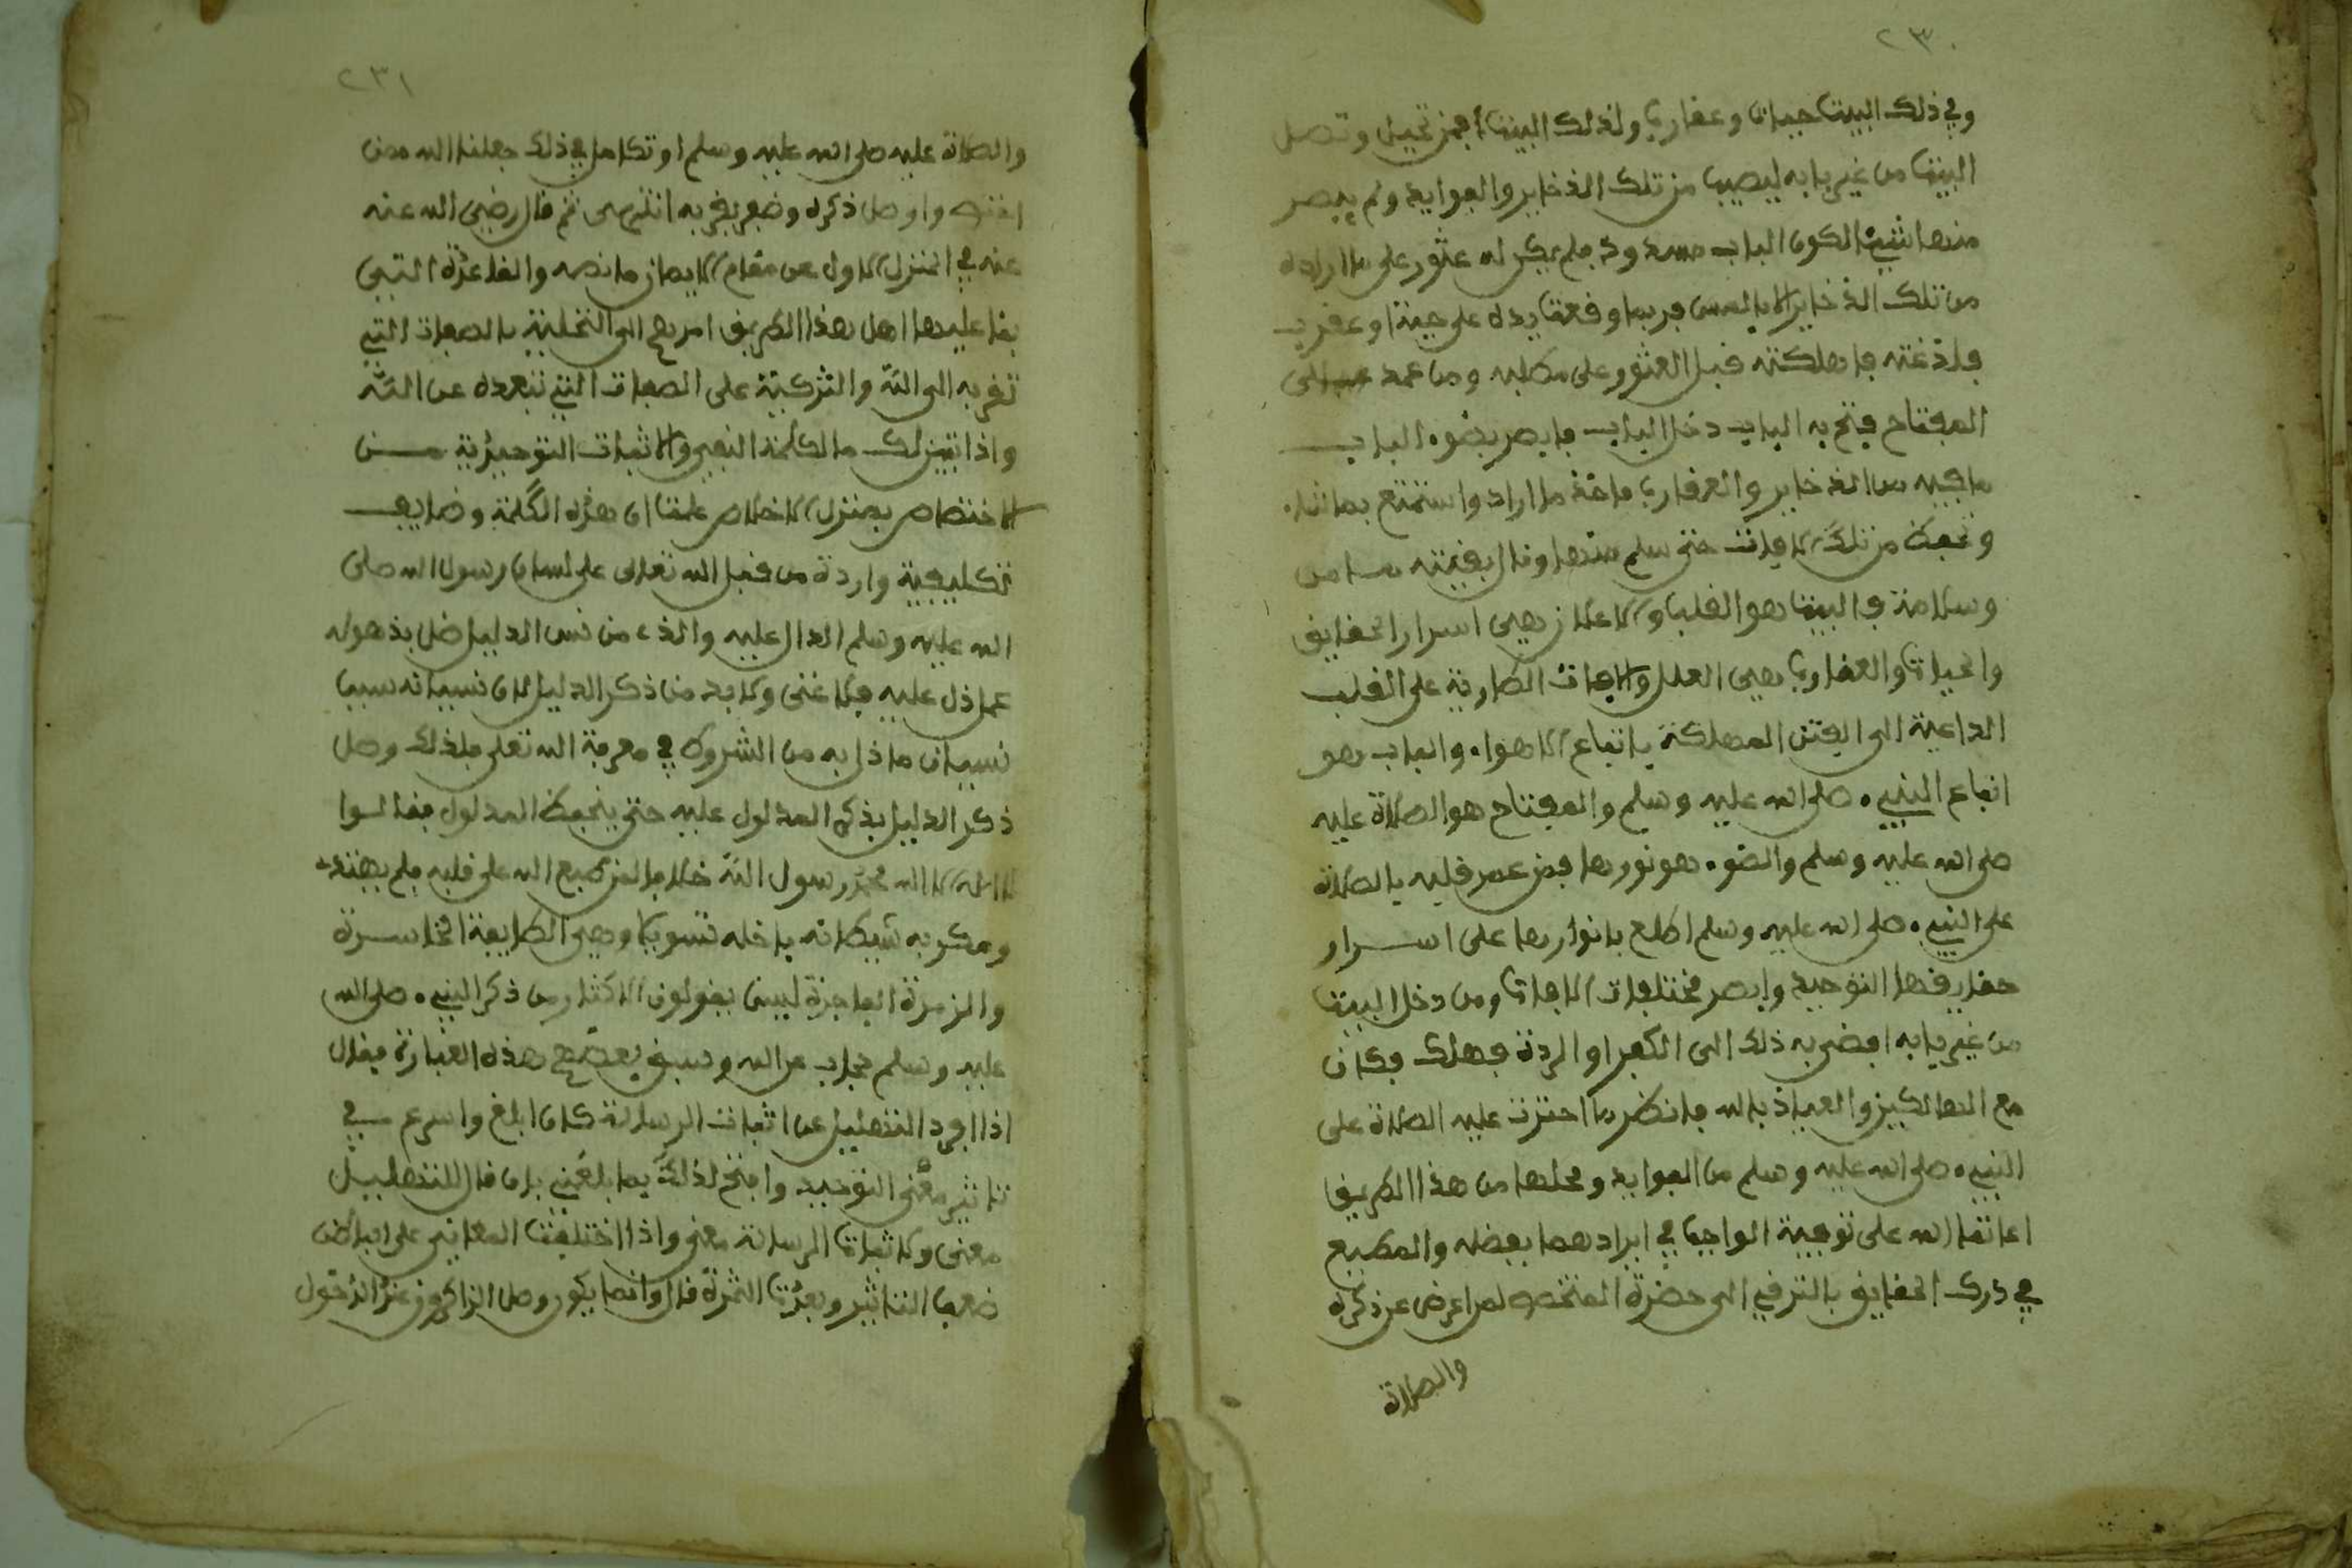 ٢٣٠
وفي ذلك البيت حيات وعقارب ولذلك البيت فمن تحيل وتصل
البيت من غير بابه ليصيب من تلك الذخاير والفوايد ولم يبصر
منها شيئا لكون الباب مسدود فلم يكن له عثور على ما اراده
من تلك الذخاير الا باللمس فربما وقعت يده على حية او عقرب
فلذغته فاهلكته قبل العثور على مطلبه ومن عمد الى
المفتاح فتح به الباب دخل الباب فابصر بضوء الباب
ما فيه من الذخاير والعقارب فاخذ ما اراد واستمتع بما شاء
وتحفظ من تلك الافات حتى سلم منها ونال بغيته
وسلامة فالبيت هو القلب والاعلاق هي اسرار الحقايق
والحيات والعقارب هي العلل والافات الطارية على القلب
الداعية الى الفتن المهلكة باتباع الاهواء والباب هو
اتباع النبيء صلى الله عليه وسلم والمفتاح هو الصلاة عليه
صلى الله عليه وسلم والضوء هو نورها فمن عمر قلبه بالصلاة
على النبيء صلى الله عليه وسلم اطلع بانوارها على اسرار
حقايقها التوحيد وابصر مختلفات الافات ومن دخل البيت
من غير بابه افضى به ذلك الى الكفر او الردة فهلك فكان
مع الهالكين والعياذ بالله فانظر ما احتوت عليه الصلاة على
النبيء صلى الله عليه وسلم من الفوايد ومحلها من هذا الطريق
اعاننا الله على توفية الواجب في ايرادهما بفضله والمطبع
في درك الحقايق بالترقي الى حضرة المختص لمن اعرض عن ذكره
والصلاة
٢٣١
والصلاة عليه صلى الله عليه وسلم او تكاسل في ذلك جعلنا الله ممن
اقتفى واوصل ذكره وضفر بقربه انتهى ثم قال رضي الله عنه
عنه في المنزل الاول من مقام الايمان ما نصه والقاعدة التي
بنا عليها اهل هذا الطريق امرهم الى التحلية بالصفات التي
تقربه الى الله والتزكية على الصفات التي تبعده عن الله
واذا تبين لك ما لكلمة النفي والاثبات التوحيدية من
الاختصاص بمنزل الاخلاص علمت ان هذه الكلمة وضايف
تكليفية واردة من قبل الله تعالى على لسان رسول الله صلى
الله عليه وسلم الدال عليه والذي من نسي الدليل ضل بذهوله
عما دل عليه فلا غنى ولا بد من ذكر الدليل لان نسيانه سبب
نسيان ما دل به من الشروط في معرفة الله تعلى فلذلك وصل
ذكر الدليل بذكر المدلول عليه حتى ينحفظ المدلول فقالوا
لا اله الا الله محمد رسول الله خلافا لمن طبع الله على قلبه فلم يهتد
ومكر به شيطانه باخله تسويلا وهي الطايفة الخاسرة
والزمرة الفاجرة ليبس يقولون الاكثار من ذكر النبيء صلى الله
عليه وسلم حجاب عن الله وسبق بعضهم هذه العبارة فقال
اذا افرد التهليل عن اثبات الرسالة كان ابلغ واسرع في
تاثير معنى التوحيد واحتج لذلك بما بلغني بان قال للتهليل
معنى ولاثبات الرسالة معنى واذا اختلفت المعاني على الباطن
ضعف التاثير وبعدت الثمرة قال وانما يكون وصل الذاكرون عند الدخول